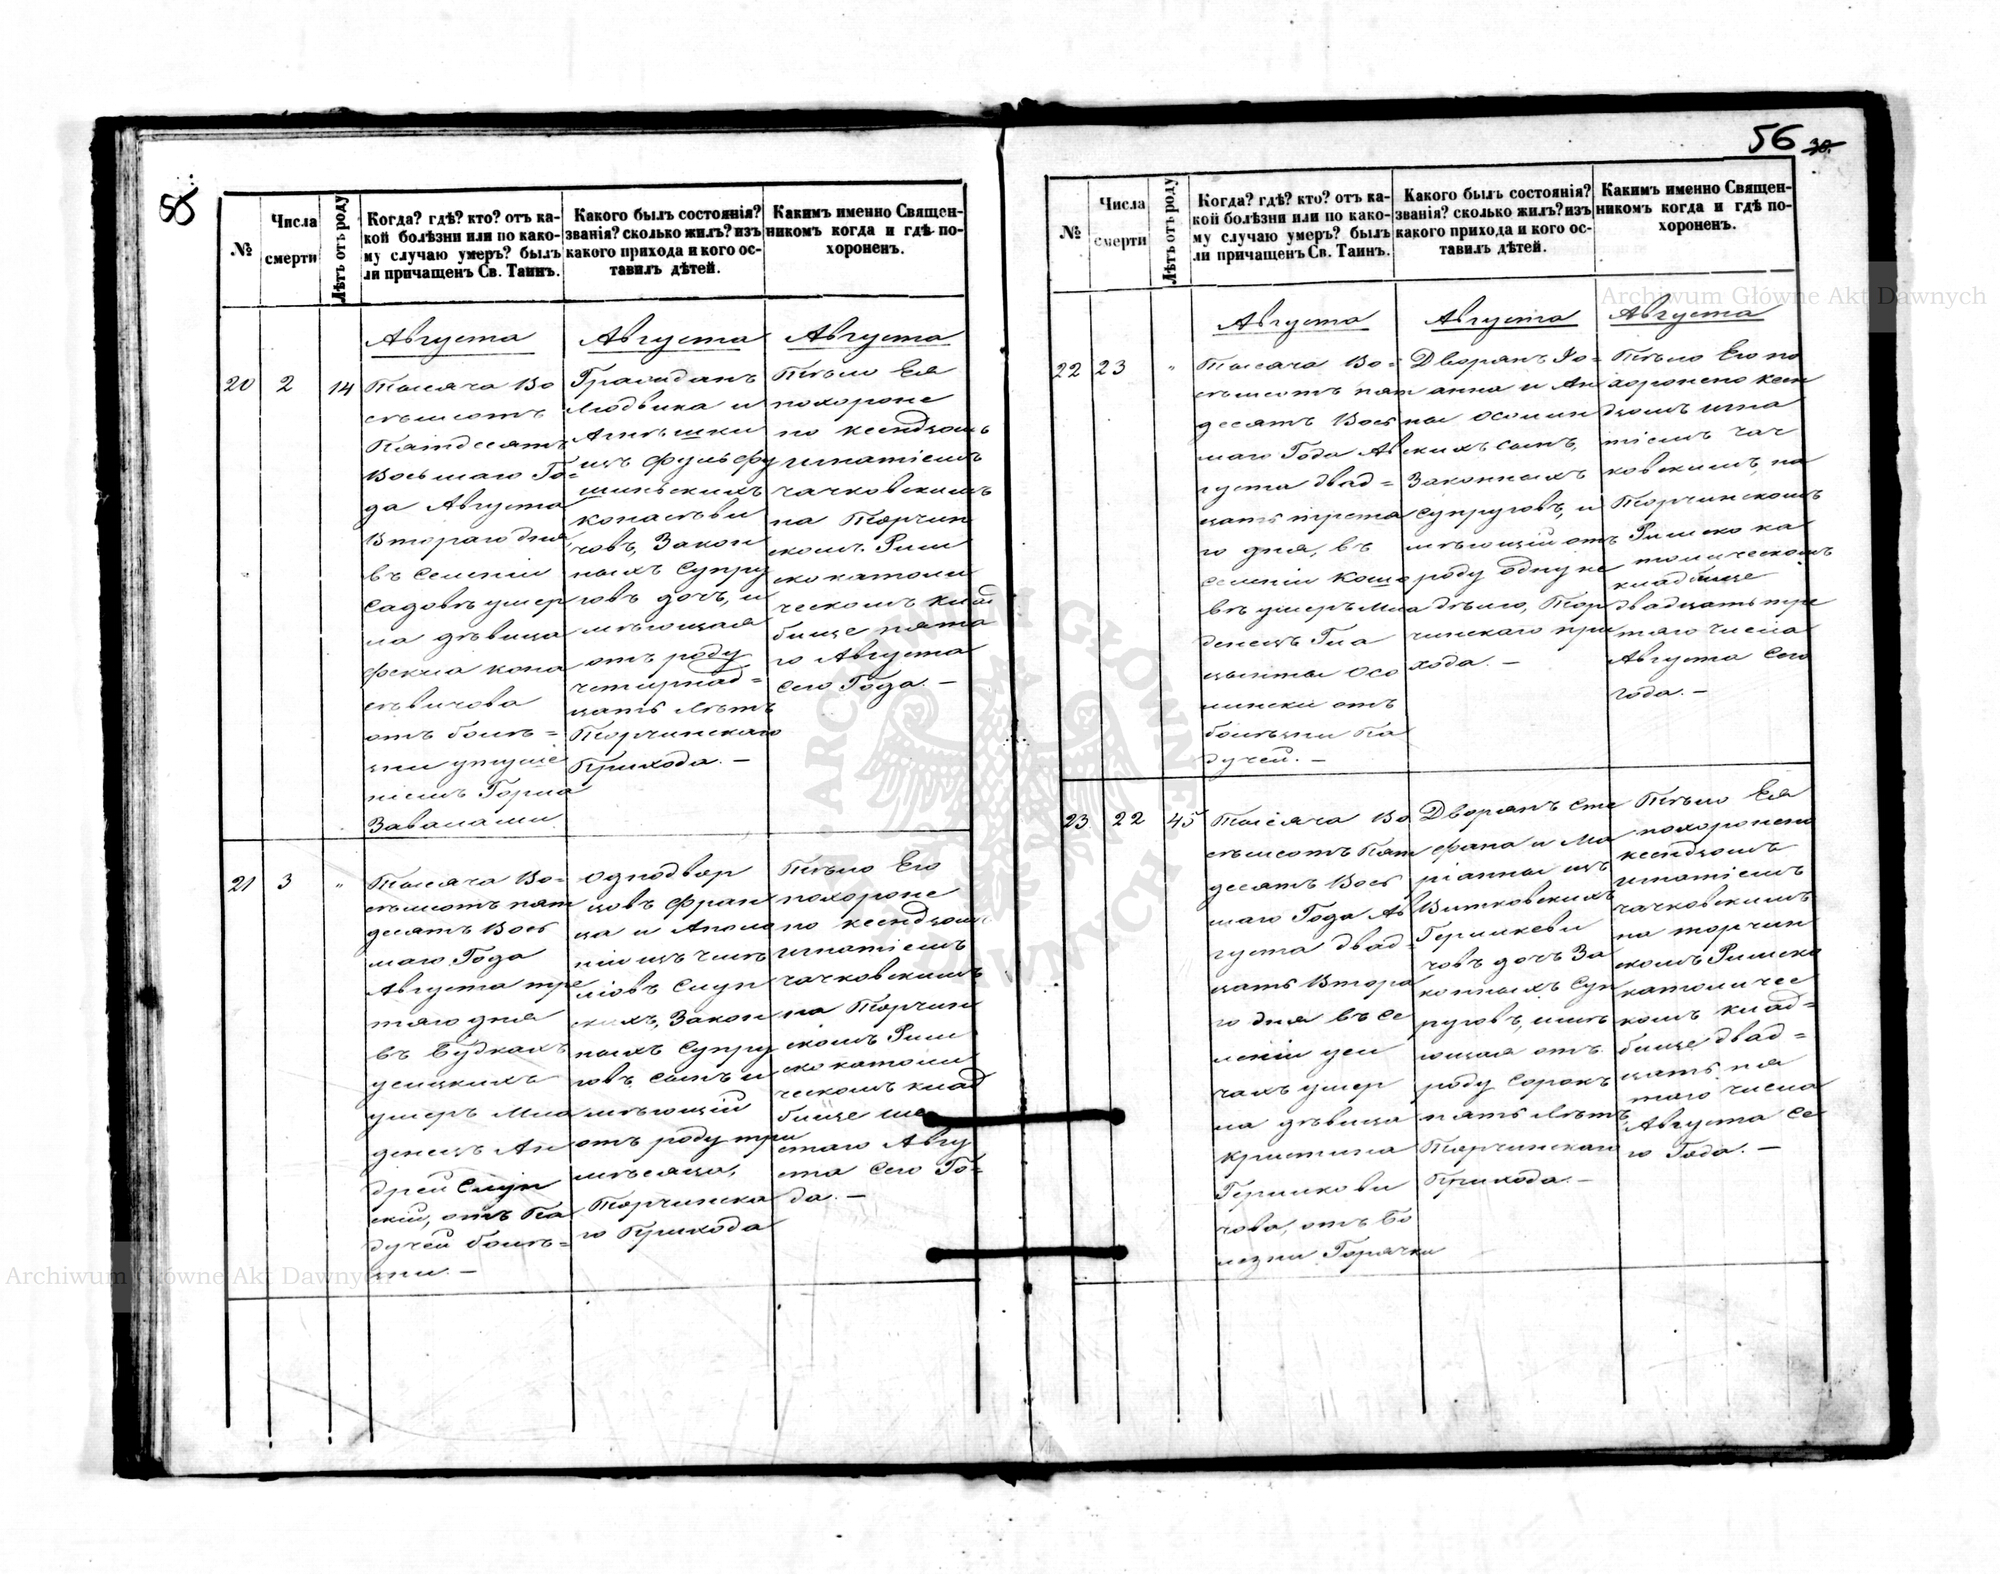 56 30.
55
№
Числа
смерти
Лѣтъ отъ роду
Когда? гдѣ? кто? отъ ка-
кой болѣзни или по како-
му случаю умеръ? былъ
ли причащенъ Св. Таинъ.
Какого былъ состоянія?
званія? сколько жилъ? изъ
какого прихода и кого ос-
тавилъ дѣтей.
Какимъ именно Священ-
никомъ когда и гдѣ по-
хороненъ.
Августа
Августа
Августа
20
2
14
Тысяча Во
съмсотъ
Пятдесятъ
Восьмаго Го-
да Августа
Втораго дня
въ селеніи
Садовъ умер
ла дѣвица
Фекла Кона
съвичова
отъ болѣ-
зни
Горла
Завалами
Гражданъ
Людвика и
изъ
ныхъ Супру
говъ дочь, и
мѣющая
отъ роду
четирнад-
цать лѣтъ
Торчинскаго
Прихода. —
Тѣло Ея
похороне
но ксендзомъ
Игнатіемъ
Чачковскимъ
на Торчин
скомъ Рим
ско католи
ческомъ клад
бище пята
го Августа
сего Года. —
21
3
"
Тысяча Во-
съмсотъ пят
десятъ Вось
маго Года
Августа тре
тяго дня
въ Будкахъ
умеръ Мла
денецъ Ан
дрей Слуп
скій, отъ Па
дучей болѣ-
зни. —
Однодвор
цовъ Фран
ца и Аполо
ніи изъ
Слуп
скихъ, Закон
ныхъ Супру
говъ сынъ и
мѣющій
отъ роду три
мѣсяца,
Торчинска
го Прихода
Тѣло Его
похороне
но ксендзомъ
Игнатіемъ
Чачковскимъ
на Торчин
скомъ Рим
ско католи
ческомъ клад
бище ше
стаго Авгу
ста сего Го-
да. —
№
Числа
смерти
Лѣтъ отъ роду
Когда? гдѣ? кто? отъ ка-
кой болѣзни или по како-
му случаю умеръ? былъ
ли причащенъ Св. Таинъ.
Какого былъ состоянія?
званія? сколько жилъ? изъ
какого прихода и кого ос-
тавилъ дѣтей.
Какимъ именно Священ-
никомъ когда и гдѣ по-
хороненъ.
Августа
Августа
Августа
22
23
"
Тысяча Во-
съмсотъ пят
десятъ Вось
маго Года Ав
густа двад-
цать третя
го дня, въ
селеніи Кошо
въ умеръ Мла
денецъ Гиа
цынты Осо
лински отъ
болѣзни Па
дучей. —
Дворянъ Іо-
анна и Ан
ны Осолин
скихъ сынъ,
Законныхъ
Супруговъ, и
мѣющій отъ
роду одну не
дѣлю, Тор
чинскаго при
хода. —
Тѣло Его по
хоронено ксен
дзомъ Игна
тіемъ Чач
ковскимъ, на
Торчинскомъ
Римско ка
толическомъ
кладбище
двадцать тре
тяго числа
Августа сего
года. —
23
22
45
Тысяча Во
съмсотъ Пят
десятъ Вось
маго Года Ав
густа двад-
цать Втора
го дня въ се
леніи Уси
чахъ умер
ла дѣвица
Кристина
Гермкови
чова, отъ Бо
лезни Горячки
Дворянъ Сте
фана и Ма
ріанны изъ
Витковскихъ
Гермкеви
човъ дочь За
конныхъ Суп
руговъ, имѣ
ющая отъ
роду сорокъ
пять лѣтъ,
Торчинскаго
Прихода. —
Тѣло Ея
похоронено
ксендзомъ
Игнатіемъ
Чачковскимъ
на торчин
скомъ Римско
католичес
комъ клад-
бище двад-
цать пя
таго числа
Августа се
го Года. —
Archiwum Główne Akt Dawnych
Archiwum Główne Akt Dawnych
ARCHIWUM GŁÓWNE
AKT DAWNYCH